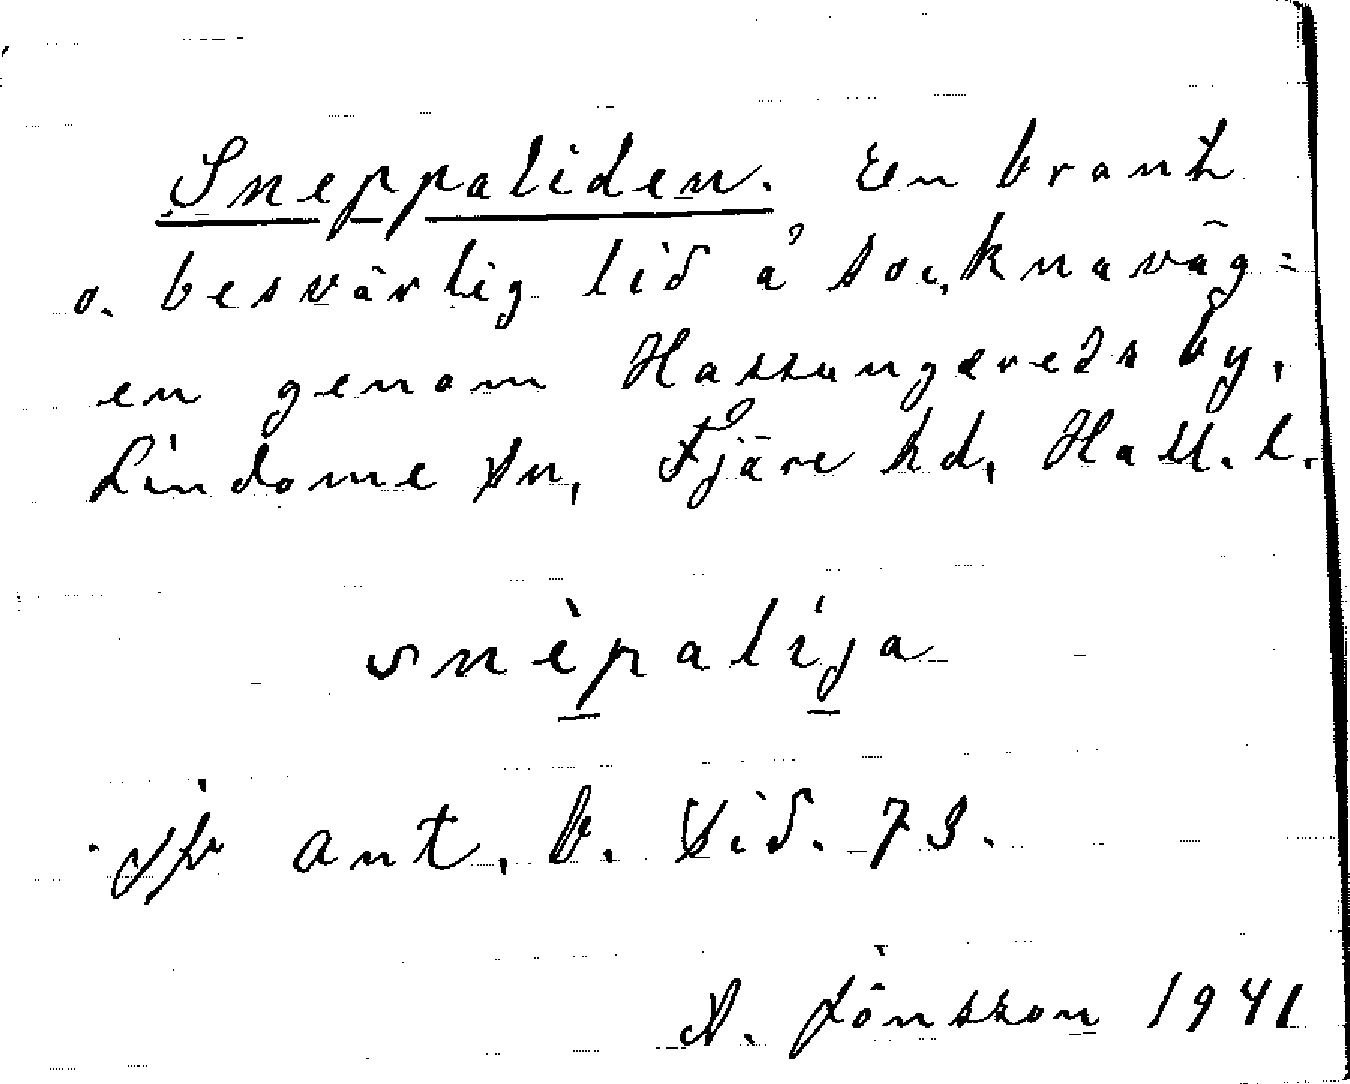 Sneppaliden. En brant
o. besvärlig lid å socknaväg=
en genom Hassungareds by,
Lindome sn, Fjäre hd, Hall. l.
snèpalija
jfr ant. b. sid. 73.
A. Jönsson 1941